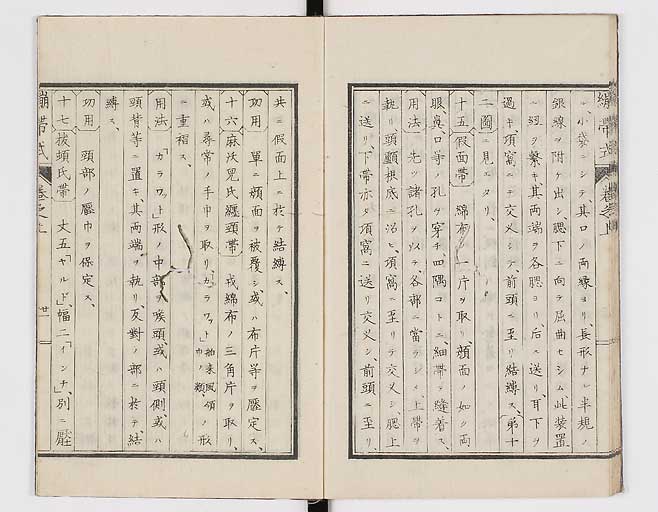 繃帯式 巻之上
ル、小袋ニシテ其口ノ両縁ヨリ、長形ナル半規ノ
銀線ヲ附ケ出シ、腮下ニ向テ屈曲セシム、此装置
ニ紐ヲ繫キ、其両端ヲ各腮ヨリ、后ヘ送リ、耳下ヲ
過キ、項窩ニテ交叉シテ、前頭ニ至リ結縛ス、第十
二圖ニ見エタリ、
十五假面帯 綿布ノ一片ヲ取リ、顔面ノ如ク両
眼鼻口等ノ孔ヲ穿チ、四隅コトニ、細帯ヲ縫着ス、
用法 先ツ諸孔ヲ以テ、各部ニ當ラシメ、上帯ヲ
執リ頭顱根底ニ沿ヒ、項窩ニ至リテ交叉シ、腮上
ニ送リ、下帯亦タ項窩ニ送リ交叉シ、前頭ニ至リ、
共ニ假面上ニ於テ結縛ス、
功用 單ニ顔面ヲ被覆シ、或ハ布片等ヲ壓定ス、
十六麻沃児氏纏頭帯 戎綿布ノ三角片ヲ取リ、
或ハ尋常ノ手巾ヲ取リ、「カラワット」 ノ形
ニ重褶ス、
用法 「カラワット」形ノ中部ヲ喉頭或ハ頸側或ハ
頭背等ニ置キ、其両端ヲ執リ、反對ノ部ニ於テ結
縛ス、
功用 頭部ノ壓巾ヲ保定ス、
十七抜頭氏帯 丈五「ヤールド」、幅二「インチ」、別ニ壓
繃帯式 巻之上 廿一